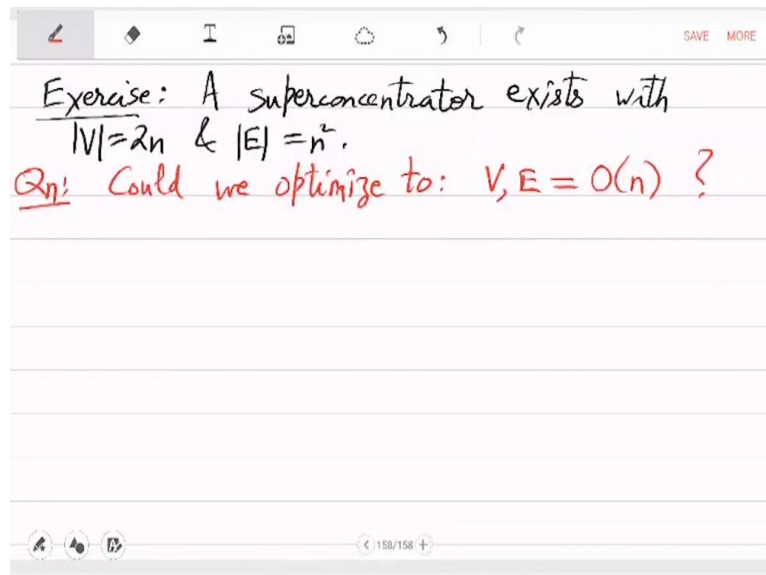 SAVE MORE
Exercise: A superconcentrator exists with
|V|=2n & |E| = n².
Qn: Could we optimize to: V, E = O(n) ?
158/158